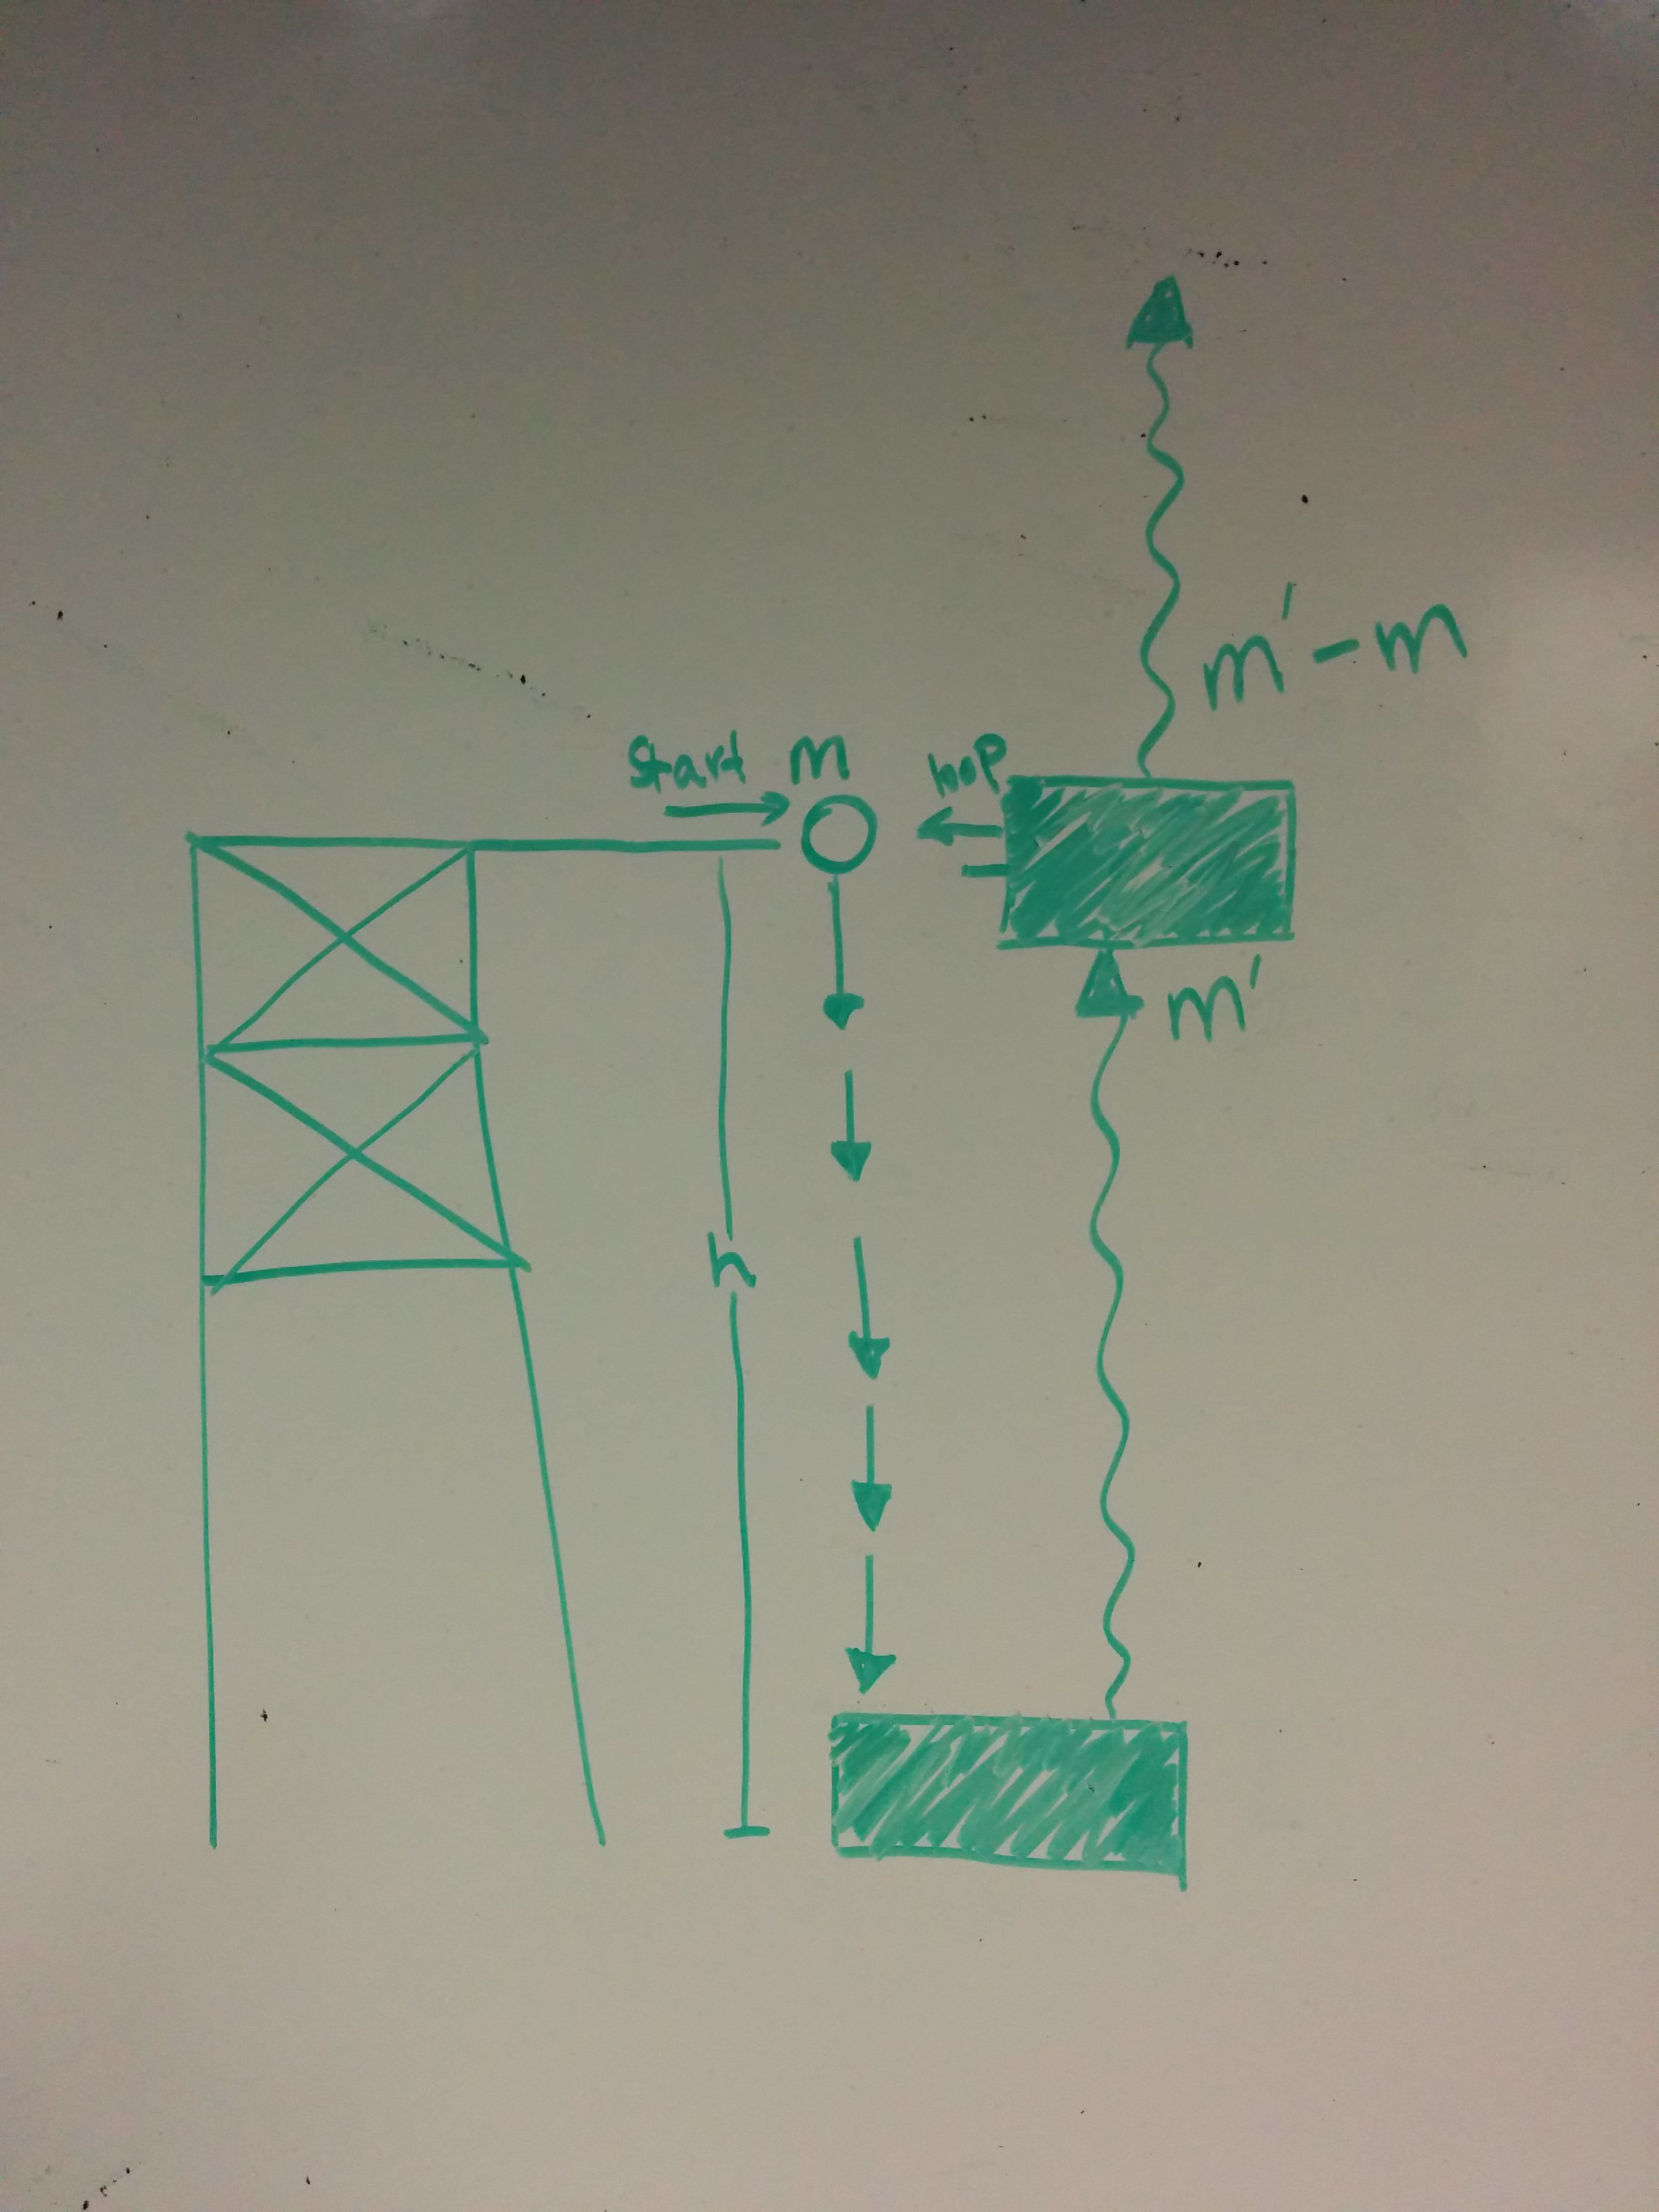 m′ - m
start m
hop
m′
h